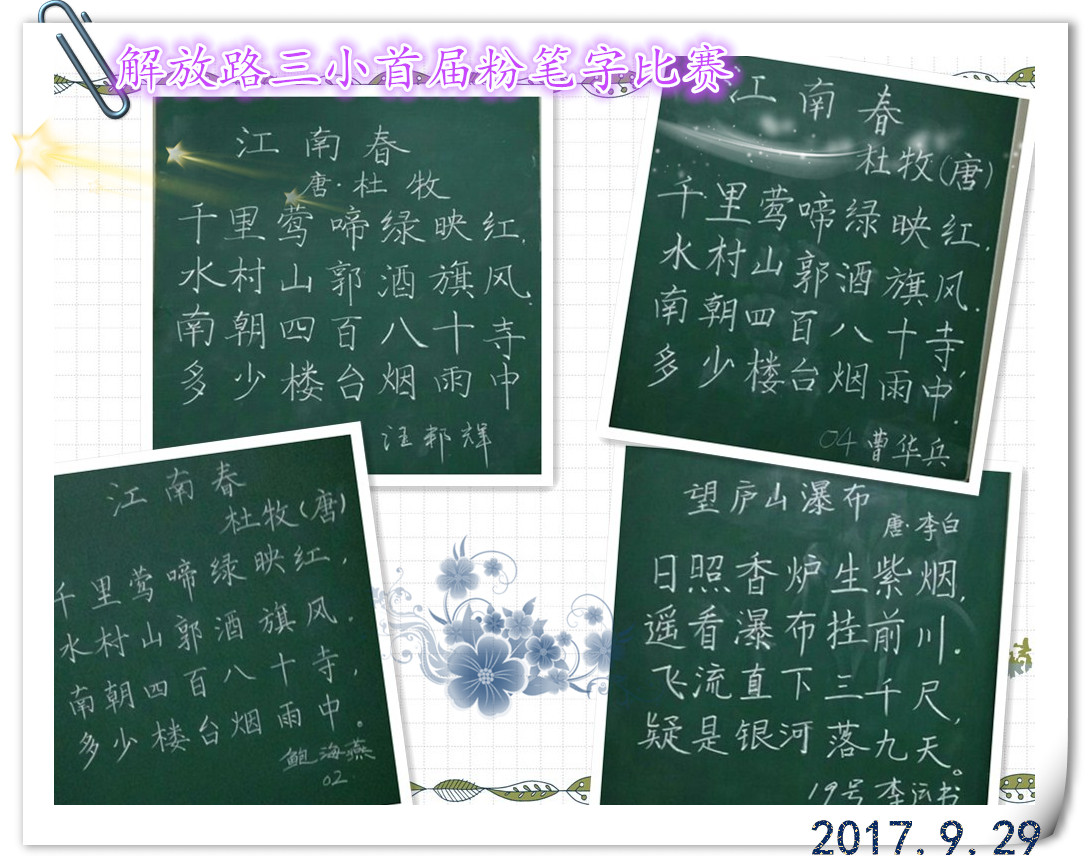 解放路三小首届粉笔字比赛
江南春
唐·杜牧
千里莺啼绿映红,
水村山郭酒旗风.
南朝四百八十寺
多少楼台烟雨中
汪邦辉
江南春
杜牧(唐)
千里莺啼绿映红,
水村山郭酒旗风.
南朝四百八十寺,
多少楼台烟雨中.
04 曹华兵
江南春
杜牧(唐)
千里莺啼绿映红,
水村山郭酒旗风.
南朝四百八十寺,
多少楼台烟雨中。
鲍海燕
02
望庐山瀑布
唐·李白
日照香炉生紫烟,
遥看瀑布挂前川.
飞流直下三千尺,
疑是银河落九天。
19号李运书
2017.9.29